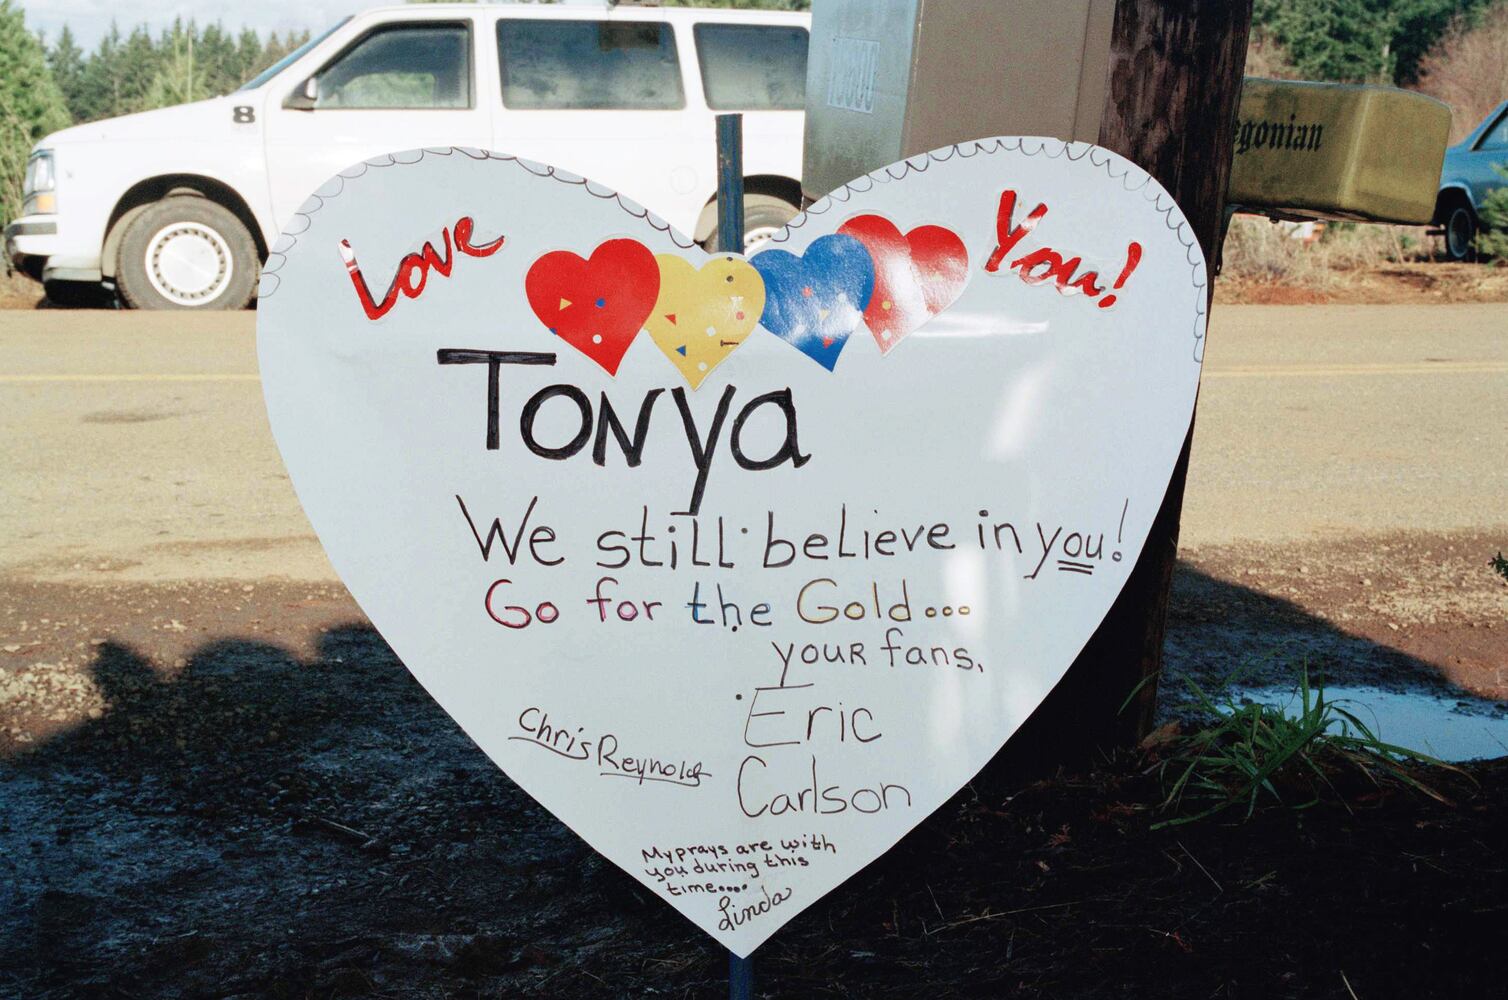 8
egonian
Love You!
Tonya
We still believe in you!
Go for the Gold...
your fans,
Eric
Carlson
Chris Reynolds
My prays are with
you during this
time....
Linda